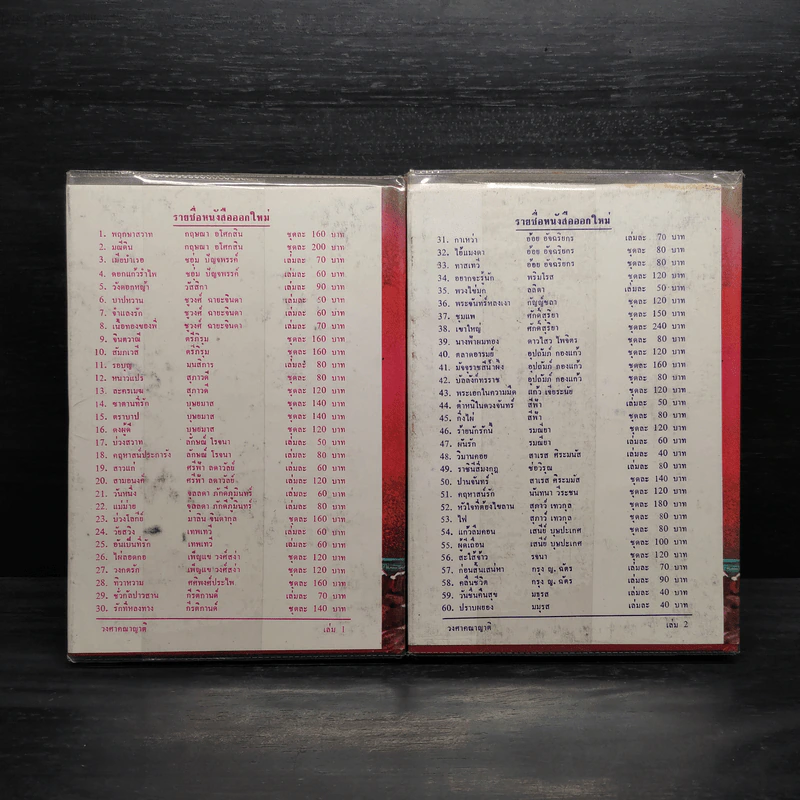 รายชื่อหนังสือออกใหม่
1. พฤกษาสวาท กฤษณา อโศกสิน ชุดละ 160 บาท
2. มณีดิน กฤษณา อโศกสิน ชุดละ 200 บาท
3. เมียบำเรอ ชอุ่ม ปัญจพรรค์ เล่มละ 70 บาท
4. ดอกแก้วร่ำไห ชอุ่ม ปัญจพรรค์ เล่มละ 60 บาท
5. วังดอกหญ้า วัสสิกา เล่มละ 90 บาท
6. บาปหวาน ชูวงศ์ ฉายะจินดา เล่มละ 50 บาท
7. จำแลงรัก ชูวงศ์ ฉายะจินดา เล่มละ 60 บาท
8. เนื้อทองของพี่ ชูวงศ์ ฉายะจินดา เล่มละ 70 บาท
9. จินตวาณี ตรีภิรุม ชุดละ 160 บาท
10. สมภเวสี ตรีภิรุม ชุดละ 160 บาท
11. รอบุญ มนสิการ เล่มละ 80 บาท
12. หนาวแปร สุภาวดี ชุดละ 80 บาท
13. ละครเมฆ สุภาวดี ชุดละ 120 บาท
14. ซาตานที่รัก บุษยมาส ชุดละ 140 บาท
15. ตราบาป บุษยมาส ชุดละ 140 บาท
16. ดงผู้ดี บุษยมาส ชุดละ 120 บาท
17. บ่วงสวาท ลักษณ์ โรจนา เล่มละ 50 บาท
18. คฤหาสน์ปะการัง ลักษณ์ โรจนา ชุดละ 80 บาท
19. สาวแก่ ศรีฟ้า ลดาวัลย์ เล่มละ 60 บาท
20. สามอนงค์ ศรีฟ้า ลดาวัลย์ ชุดละ 120 บาท
21. วันหนึ่ง จุลลดา ภักดีภูมินทร์ เล่มละ 60 บาท
22. แม่ม่าย จุลลดา ภักดีภูมินทร์ ชุดละ 120 บาท
23. บ่วงโลกีย์ มาลิน จินดากุล ชุดละ 160 บาท
24. วัยสวิง เทพเทวี เล่มละ 60 บาท
25. อันเป็นที่รัก เทพเทวี เล่มละ 60 บาท
26. ไผ่ลอดกอ เพ็ญแข วงศ์สง่า ชุดละ 120 บาท
27. วงกตรัก เพ็ญแข วงศ์สง่า ชุดละ 120 บาท
28. ทิวาหวาม ศศิพงศ์ประไพ ชุดละ 160 บาท
29. ชั่วกัลปาวสาน กีรติกานต์ เล่มละ 70 บาท
30. รักที่หลงทาง กีรติกานต์ ชุดละ 140 บาท
วงศาคณาญาติ เล่ม 1
รายชื่อหนังสือออกใหม่
31. กาเหว่า อ้อย อัจฉริยกร เล่มละ 70 บาท
32. ไอ้แมงดา อ้อย อัจฉริยกร ชุดละ 80 บาท
33. ทาสเทวี อ้อย อัจฉริยกร ชุดละ 80 บาท
34. อยากจะรู้นัก พริมโรส ชุดละ 120 บาท
35. พวงไข่มุก ลลิตา เล่มละ 50 บาท
36. พระจันทร์หลงเงา กัญญ์ชลา ชุดละ 120 บาท
37. ชุมแพ ศักดิ์สุริยา ชุดละ 150 บาท
38. เขาใหญ่ ศักดิ์สุริยา ชุดละ 240 บาท
39. นางฟ้าผมทอง ดาวไสว ไพจิตร ชุดละ 80 บาท
40. ตลาดอารมย์ อุปถัมภ์ กองแก้ว ชุดละ 120 บาท
41. มัจจุราชสีน้ำผึ้ง อุปถัมภ์ กองแก้ว ชุดละ 160 บาท
42. บัลลังก์ทรราช อุปถัมภ์ กองแก้ว ชุดละ 80 บาท
43. พระเอกในความมืด แก้ว เจียระนัย ชุดละ 120 บาท
44. ตำหนิในดวงจันทร์ สีฟ้า เล่มละ 50 บาท
45. กิ่งไผ่ สีฟ้า ชุดละ 80 บาท
46. ร้ายนักรักนี้ รมณียา ชุดละ 120 บาท
47. ฝันรัก รมณียา เล่มละ 60 บาท
48. วิมานคอย สาเรส ศิระมนัส เล่มละ 40 บาท
49. ราชินีสีมงกุฎ ชัยวิรุณ ชุดละ 80 บาท
50. ปานจันทร์ สาเรส ศิระมนัส ชุดละ 140 บาท
51. คฤหาสน์รัก นันทนา วีระชน ชุดละ 120 บาท
52. หัวใจที่ต้องไขลาน สุภาว์ เทวกุล ชุดละ 180 บาท
53. ไฟ สุภาว์ เทวกุล ชุดละ 80 บาท
54. แก้วลืมคอน เสนีย์ บุษปะเกศ ชุดละ 80 บาท
55. ผู้ดีเถื่อน เสนีย์ บุษปะเกศ ชุดละ 100 บาท
56. สะใภ้จ้าว รจนา ชุดละ 120 บาท
57. ก่อนสิ้นเสน่หา กรุง ญ. ฉัตร เล่มละ 70 บาท
58. คลื่นชีวิต กรุง ญ. ฉัตร เล่มละ 90 บาท
59. วันชื่นคืนสุข มธุรส เล่มละ 40 บาท
60. ปราบพยอง มธุรส เล่มละ 40 บาท
วงศาคณาญาติ เล่ม 2